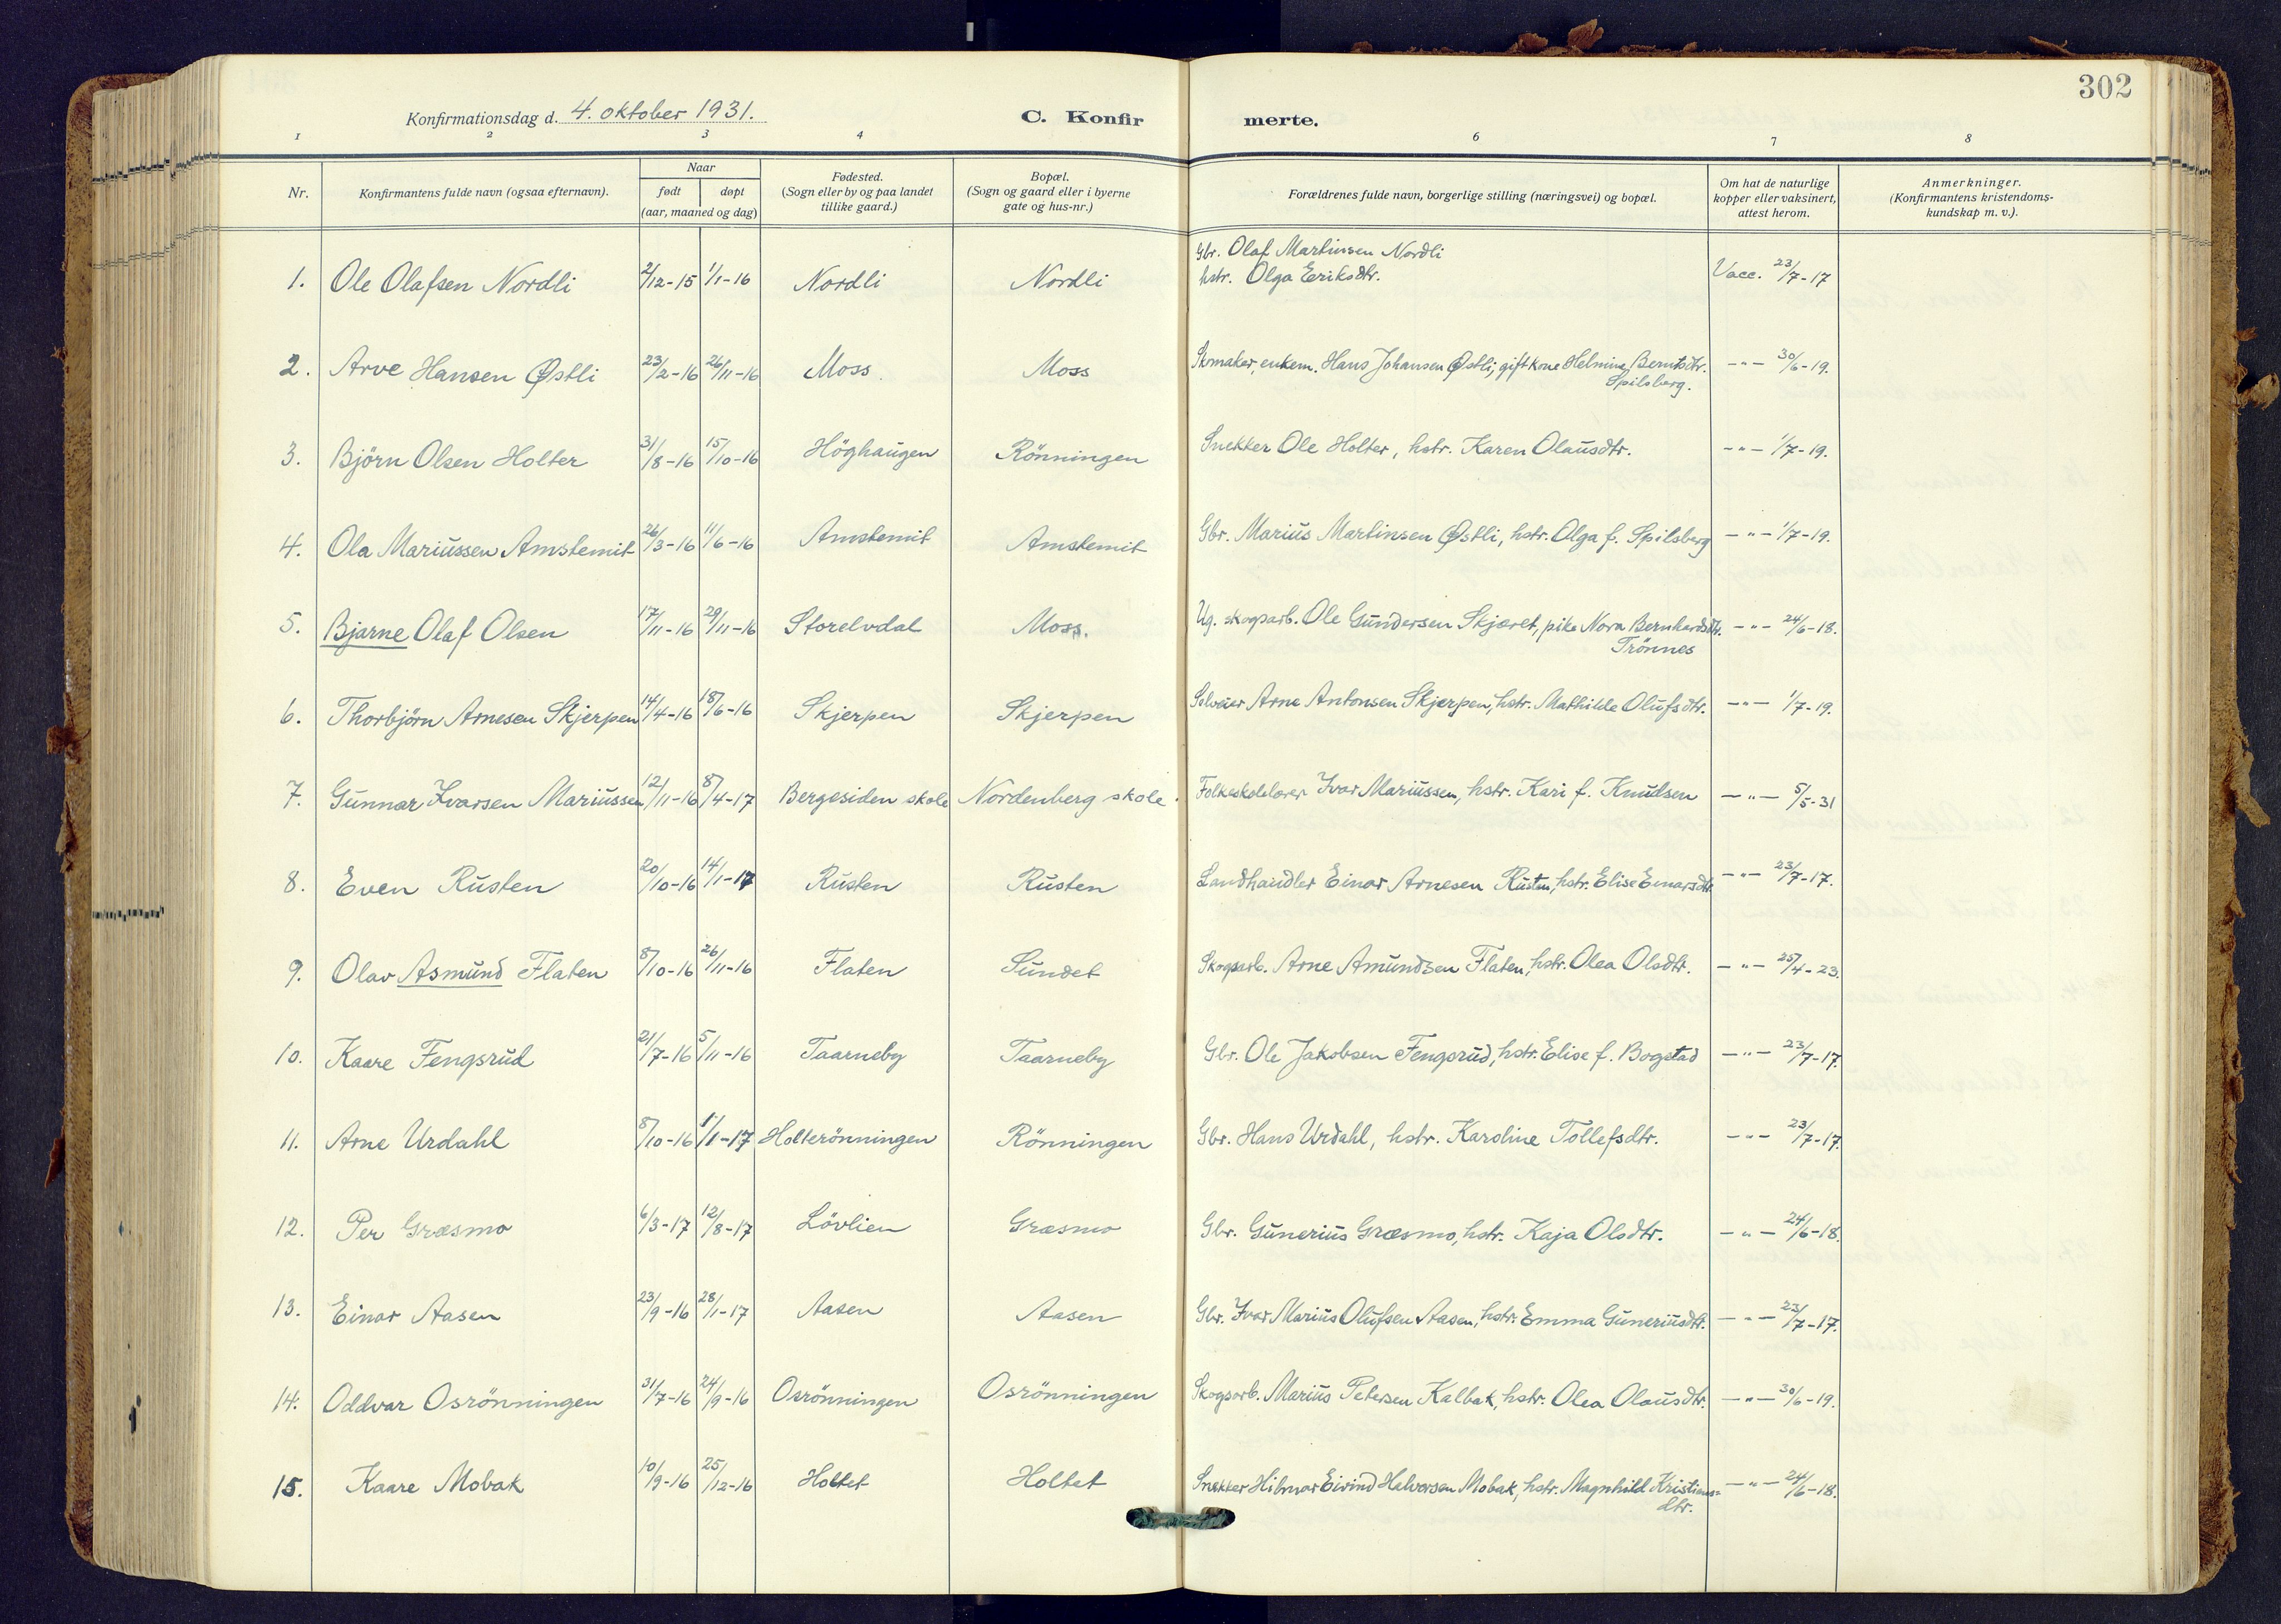 302
Konfirmationsdag d. 4. oktober 1931. C. Konfirmerte.
1 2 3 4 6 7 8
Nr. Konfirmantens fulde navn (ogsaa efternavn). Naar født døpt (aar, maaned og dag) Fødested. (Sogn eller by og paa landet tillike gaard.) Bopæl. (Sogn og gaard eller i byerne gate og hus-nr.) Forældrenes fulde navn, borgerlige stilling (næringsvei) og bopæl. Om hat de naturlige kopper eller vaksinert, attest herom. Anmerkninger. (Konfirmantens kristendoms-kundskap m. v.).
1. Ole Olafsen Nordli 2/12-15 1/1-16 Nordli Nordli Gbr. Olaf Martinsen Nordli hstr. Olga Eeriksdtr. Vacc. 23/7-17
2. Arve Hansen Østli 23/2-16 26/11-16 Moss Moss Skomaker, enkem. Hans Johansen Østli, gift kone Helmine Berntsdtr. Spilsberg. -"- 30/6-19.
3. Björn Olsen Holter 31/8-16 15/10-16 Höghaugen Rönningen Snekker Ole Holter, hstr. Karen Olausdtr. -"- 1/7-19.
4. Ola Mariussen Amstemit 26/3-16 11/6-16 Amstemit Amstemit Gbr. Marius Martinsen Østli, hstr. Olga f. Spilsberg -"- 1/7-19.
5. Bjarne Olaf Olsen 17/11-16 29/11-16 Storelvdal Moss. Ug. skogsarb. Ole Gundersen Skjæret, pike Nora Bernhardsdtr. Trönnes -"- 24/6-18.
6. Thorbjörn Arnesen Skjerpen 14/4-16 18/6-16 Skjerpen Skjerpen Selveier Arne Antonsen Skjerpen, hstr. Mathilde Olufsdtr. -"- 1/7-19.
7. Gunnar Ivarsen Mariussen 12/11-16 8/4-17 Bergesiden skole Nordenberg skole. Folkeskolelærer Ivar Mariussen, hstr. Kari f. Knudsen -"- 5/5-31
8. Even Rusten 20/10-16 14/1-17 Rusten Rusten Landhandler Einar Arnesen Rusten, hstr. Elise Einarsdtr. -"- 23/7-17.
9. Olav Asmund Flaten 8/10-16 26/11-16 Flaten Sundet Skogsarb. Arne Amundsen Flaten, hstr. Olea Olsdtr. -"- 25/4-23.
10. Kaare Fengsrud 21/7-16 5/11-16 Taarneby Taarneby Gbr. Ole Jakobsen Fengsrud, hstr. Elise f. Bogstad -"- 23/7-17.
11. Arne Urdahl 8/10-16 1/1-17 Holterönningen Rönningen Gbr. Hans Urdahl, hstr. Karoline Tollefsdtr. -"- 23/7-17.
12. Per Græsmo 6/3-17 12/8-17 Lövlien Græsmo Gbr. Gunerius Græsmo, hstr. Kaja Olsdtr. -"- 24/6-18.
13. Einar Aasen 23/9-16 28/1-17 Aasen Aasen Gbr. Ivar Marius Olufsen Aasen, hstr. Emma Guneriusdtr. -"- 23/7-17.
14. Oddvar Osrönningen 31/7-16 24/9-16 Osrönningen Osrönningen Skogsarb. Marius Petersen Kalbak, hstr. Olea Olausdtr. -"- 30/6-19.
15. Kaare Mobak 10/9-16 25/12-16 Holtet Holtet Snekker Hilmar Eivind Halvorsen Mobak, hstr. Magnhild Kristians=dtr. -"- 24/6-18.